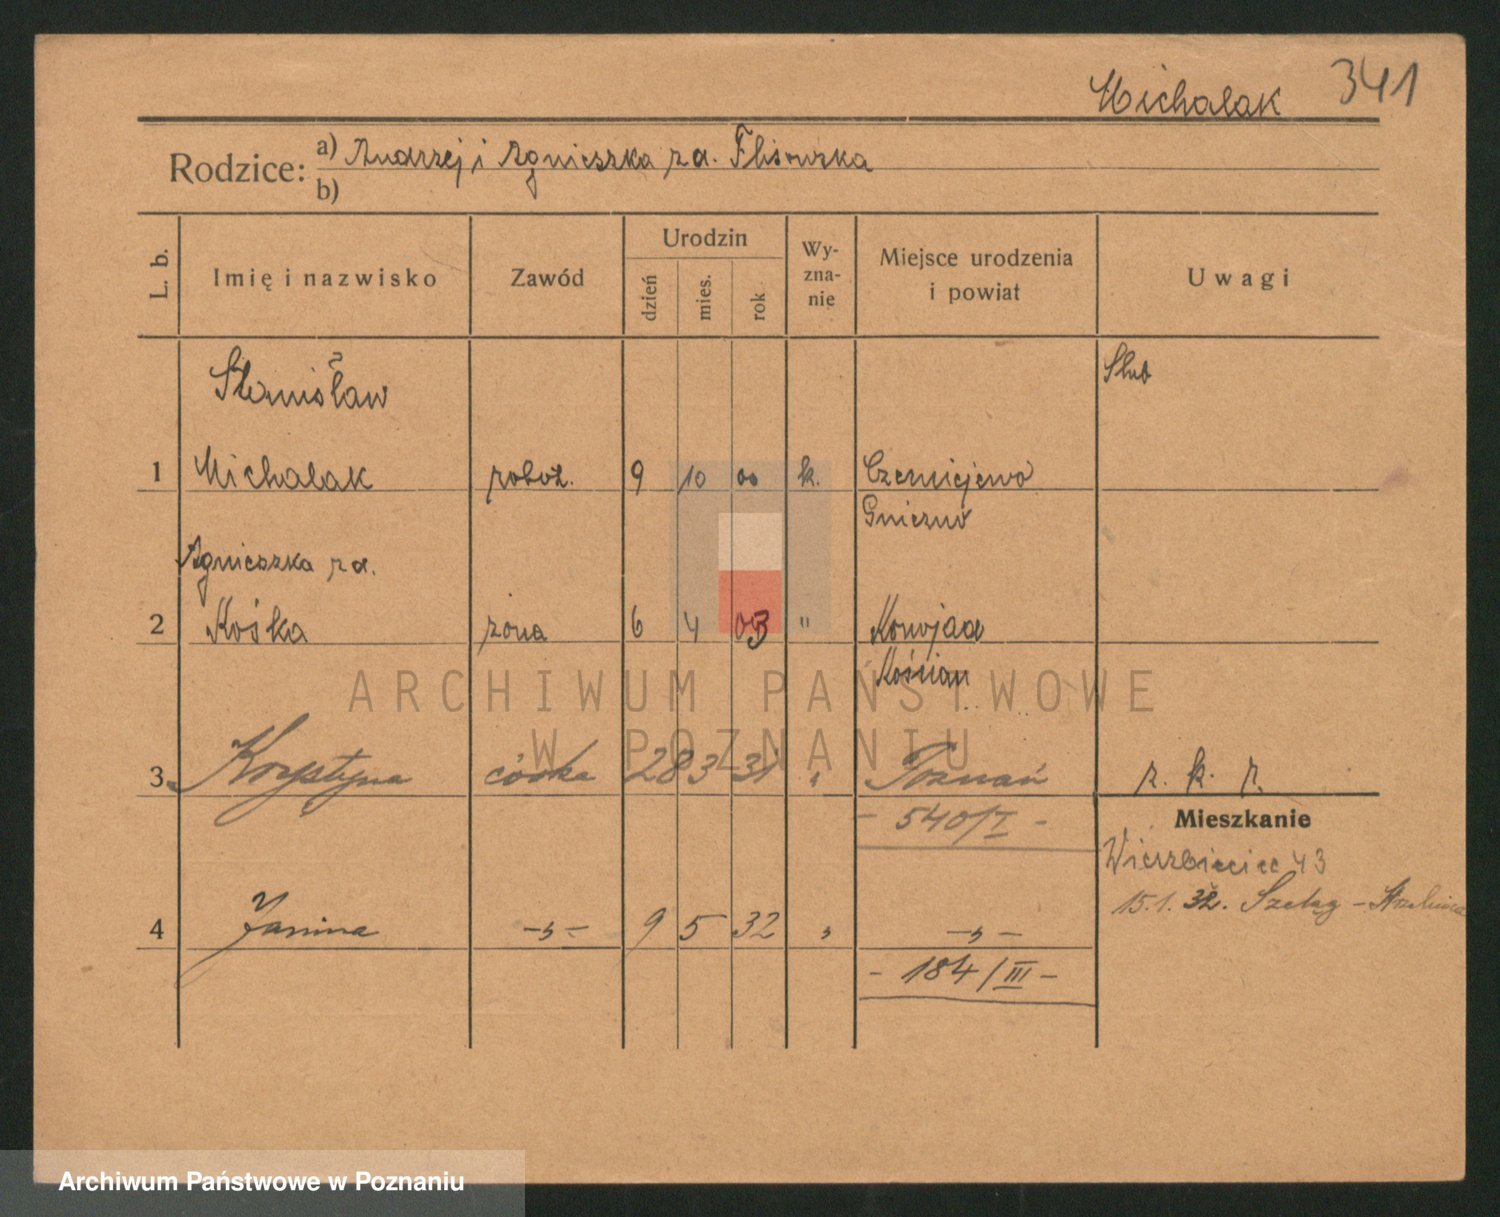 Michalak 341
Rodzice: a) Andrzej i Agnieszka z d. Flisowska
b)
L. b. Imię i nazwisko Zawód Urodzin dzień mies. rok Wy-zna-nie Miejsce urodzenia i powiat Uwagi
Stanisław Ślub
1 Michalak robot. 9 10 00 k. Czerniejewo
Gniezno
Agnieszka z d.
2 Kośka żona 6 4 03 " Konojad
Kościan
ARCHIWUM PAŃSTWOWE
W POZNANIU
3 Krystyna córka 28 3 31 " Poznań
- 540/I -
Mieszkanie
Wierzbięcice 43
15.1.32. Szeląg - Strzelnica
4 Janina -"- 9 5 32 " -"-
- 184/III -
Archiwum Państwowe w Poznaniu